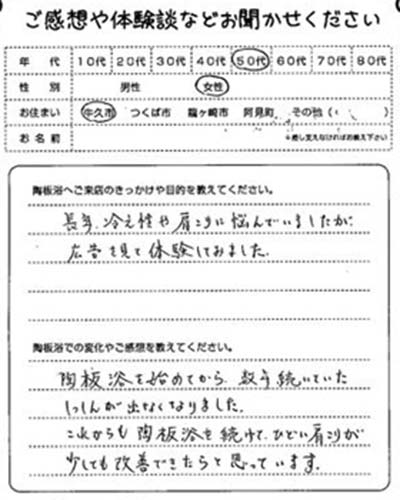 ご感想や体験談などお聞かせください
年代 10代 20代 30代 40代 50代 60代 70代 80代
性別 男性 女性
お住まい 牛久市 つくば市 龍ヶ崎市 阿見町 その他( )
お名前 *差し支えなければお教え下さい
陶板浴へご来店のきっかけや目的を教えてください。
長年、冷え性や肩こりに悩んでいましたが、
広告を見て体験してみました。
陶板浴での変化やご感想を教えてください。
陶板浴を始めてから、数年続いていた
しっしんが出なくなりました。
これからも陶板浴を続けて、ひどい肩こりが
少しでも改善できたらと思っています。